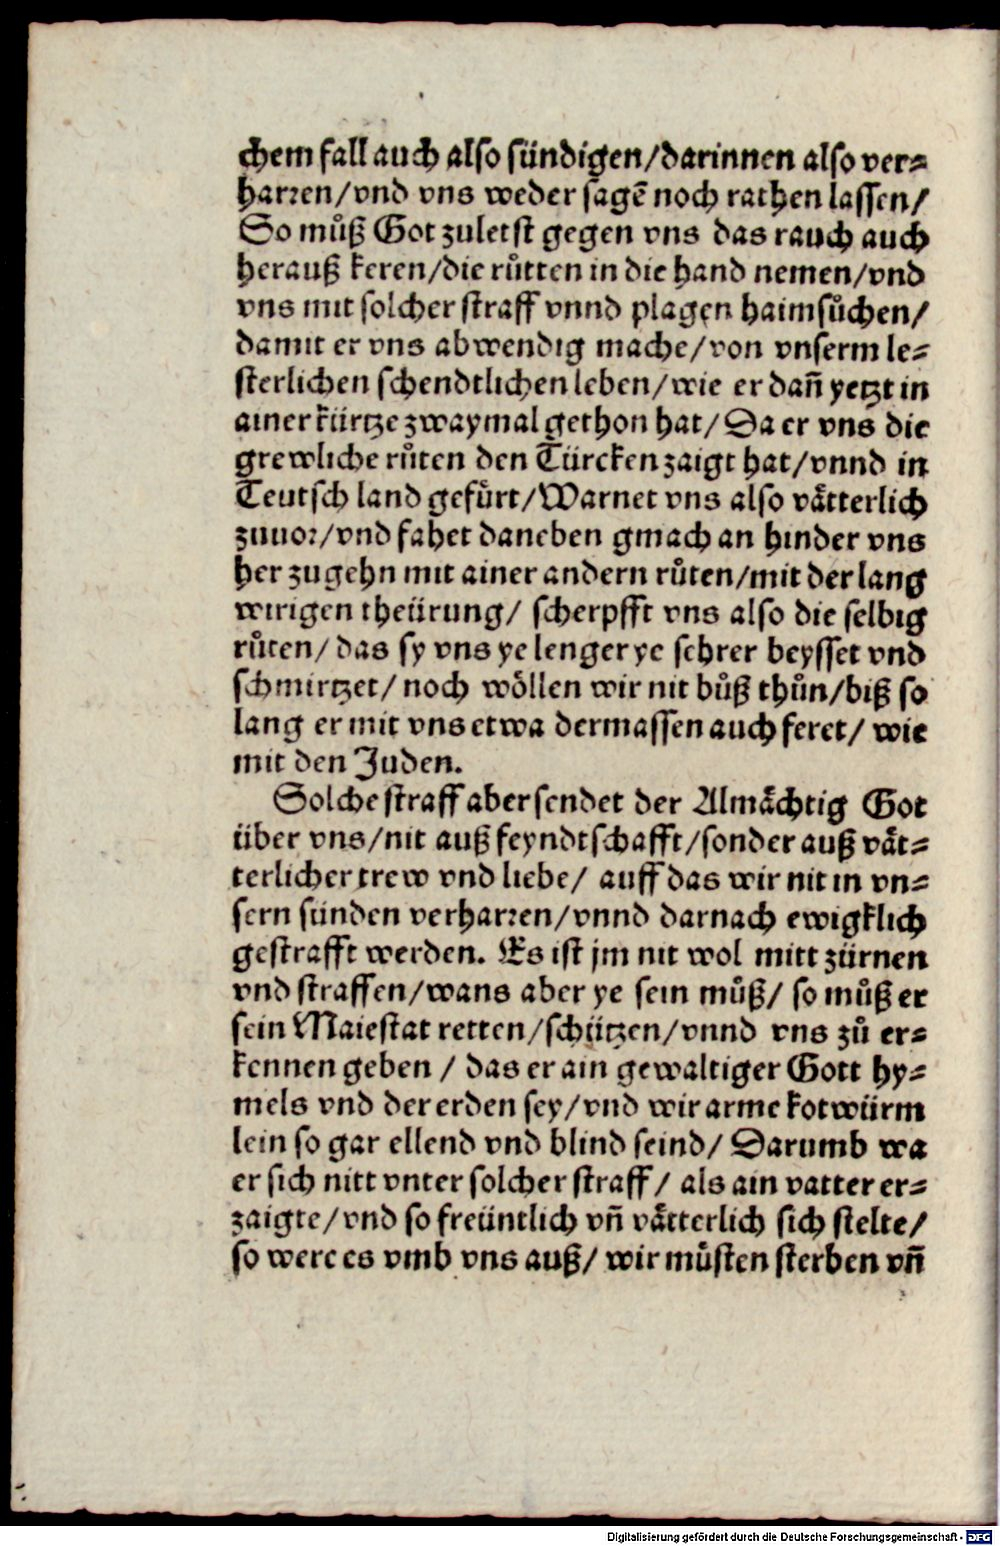 chem fall auch also sündigen/darinnen also ver⸗
harren/vnd vns weder sagẽ noch rathen lassen/
So můß Got zuletst gegen vns das rauch auch
herauß keren/die růtten in die hand nemen/vnd
vns mit solcher straff vnnd plagen haimsůchen/
damit er vns abwendig mache/von vnserm le⸗
sterlichen schendtlichen leben/wie er dañ yetzt in
ainer kürtze zwaymal gethon hat/Da er vns die
grewliche růten den Türcken zaigt hat/vnnd in
Teutsch land gefürt/Warnet vns also vätterlich
zuuor/vnd fahet daneben gmach an hinder vns
her zugehn mit ainer andern růten/mit der lang
wirigen theürung/ scherpfft vns also die selbig
růten/ das sy vns ye lenger ye sehrer beysset vnd
schmirtzet/ noch wöllen wir nit bůß thůn/biß so
lang er mit vns etwa dermassen auch feret/ wie
mit den Juden.
Solche straff aber sendet der Almächtig Got
über vns/nit auß feyndtschafft/sonder auß vät⸗
terlicher trew vnd liebe/ auff das wir nit in vn⸗
sern sünden verharren/vnnd darnach ewigklich
gestrafft werden. Es ist jm nit wol mitt zürnen
vnd straffen/wans aber ye sein můß/ so můß er
sein Maiestat retten/schützen/vnnd vns zů er⸗
kennen geben / das er ain gewaltiger Gott hy⸗
mels vnd der erden sey/vnd wir arme kotwürm
lein so gar ellend vnd blind seind/ Darumb wa
er sich nitt vnter solcher straff/ als ain vatter er⸗
zaigte/vnd so freüntlich vñ vätterlich sich stelte/
so were es vmb vns auß/ wir müsten sterben vñ
Digitalisierung gefördert durch die Deutsche Forschungsgemeinschaft - DFG